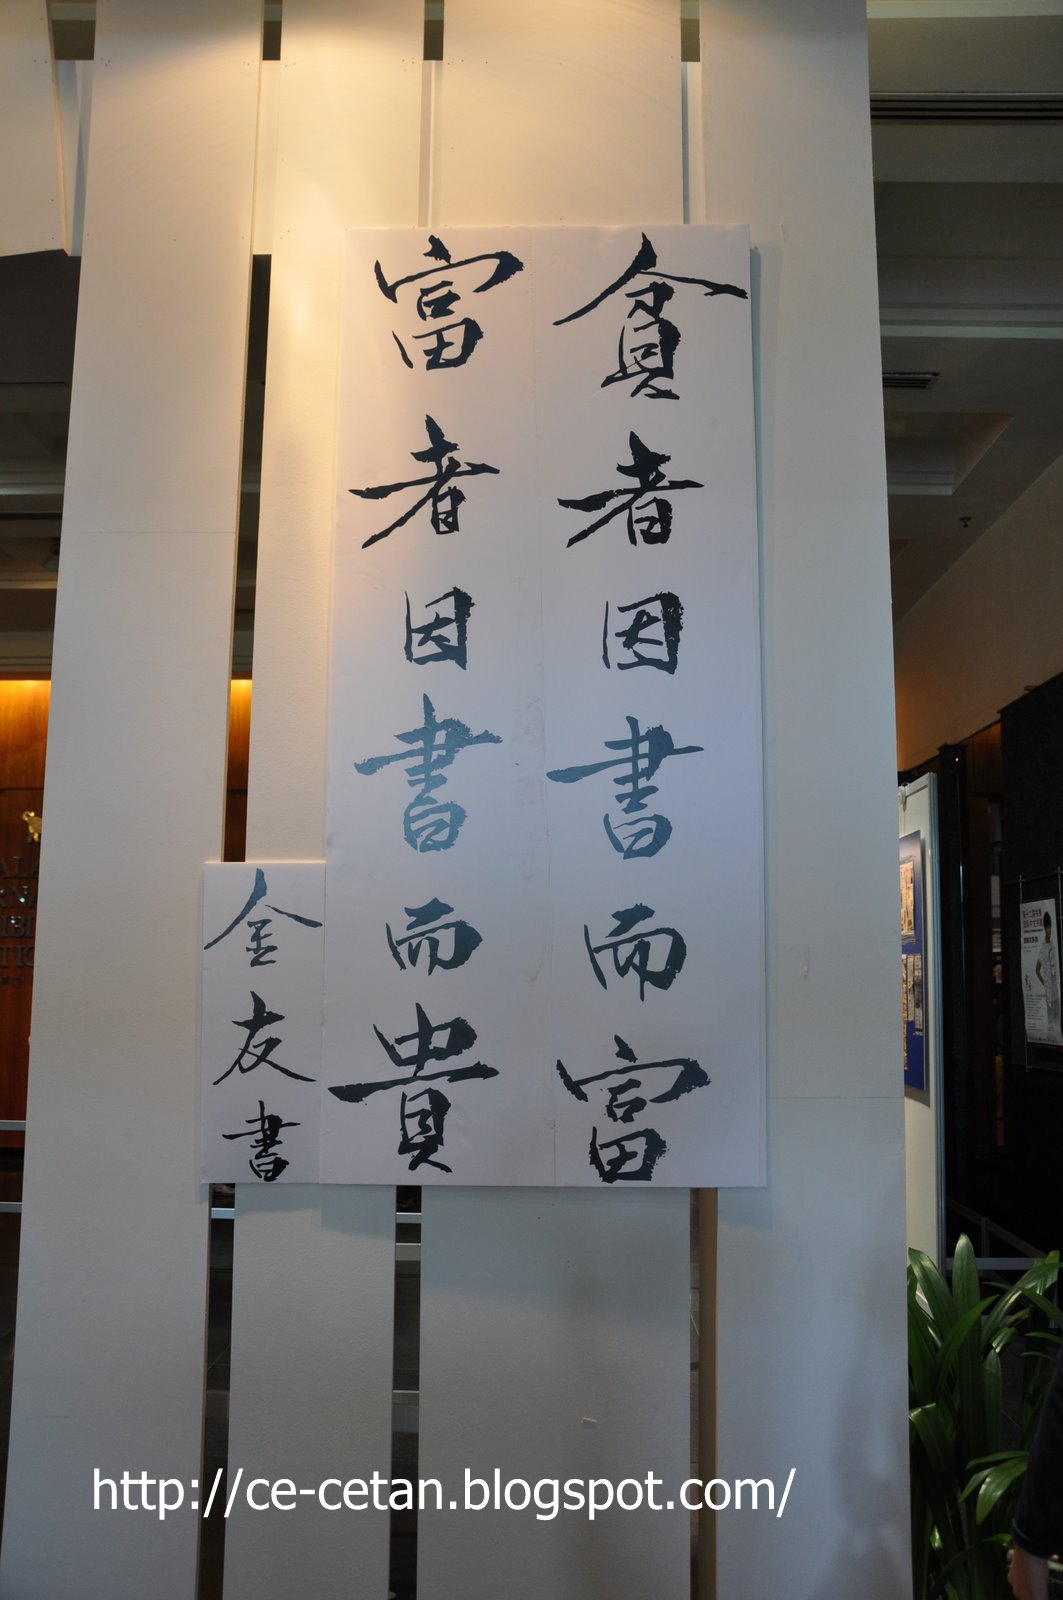 貧者因書而富
富者因書而貴
金友書
http://ce-cetan.blogspot.com/